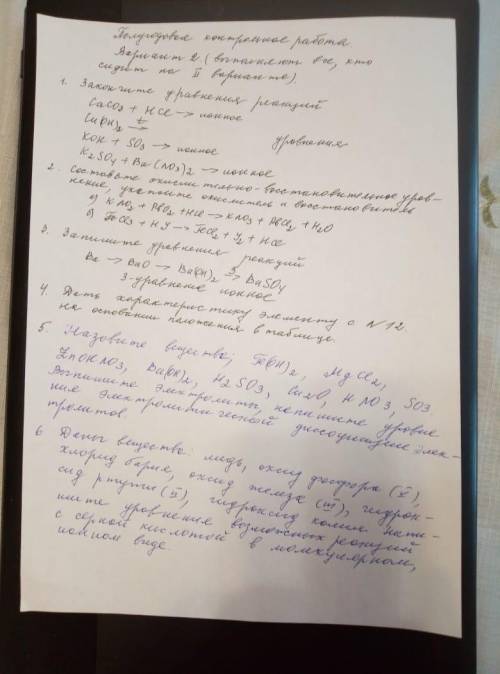 Полугодовая контрольная работа.
Вариант 2 (выполняют все, кто
сидит на II варианте).
1. Закончите уравнения реакций
CaCO3 + HCl → ионное
Cu(OH)2 t→
KOH + SO3 → ионное уравнения
K2SO4 + Ba(NO3)2 → ионное
2. Составьте окислительно-восстановительное урав-
нение, укажите окислитель и восстановитель
а) KNO2 + PbO2 + HCl → KNO3 + PbCl2 + H2O
б) FeCl3 + HJ → FeCl2 + J2 + HCl
3. Запишите уравнения реакций
Ba → BaO → Ba(OH)2 3→ BaSO4
3-уравнение ионное
4. Дать характеристику элементу с N12.
на основании положения в таблице.
5. Назовите вещества; Fe(OH)2, MgCl2,
ZnOHNO3, Ba(OH)2, H2SO3, Cu2O, HNO3, SO3
Выпишите электролиты, напишите уравне
ния электролитической диссоциации элек-
тролитов
6 Даны вещества: медь, оксид фосфора (V),
хлорид бария, оксид железа (III), гидрок-
сид ртути (II), гидроксид калия напи-
шите уравнения возможных реакций
с серной кислотой в молекулярном,
ионном виде.